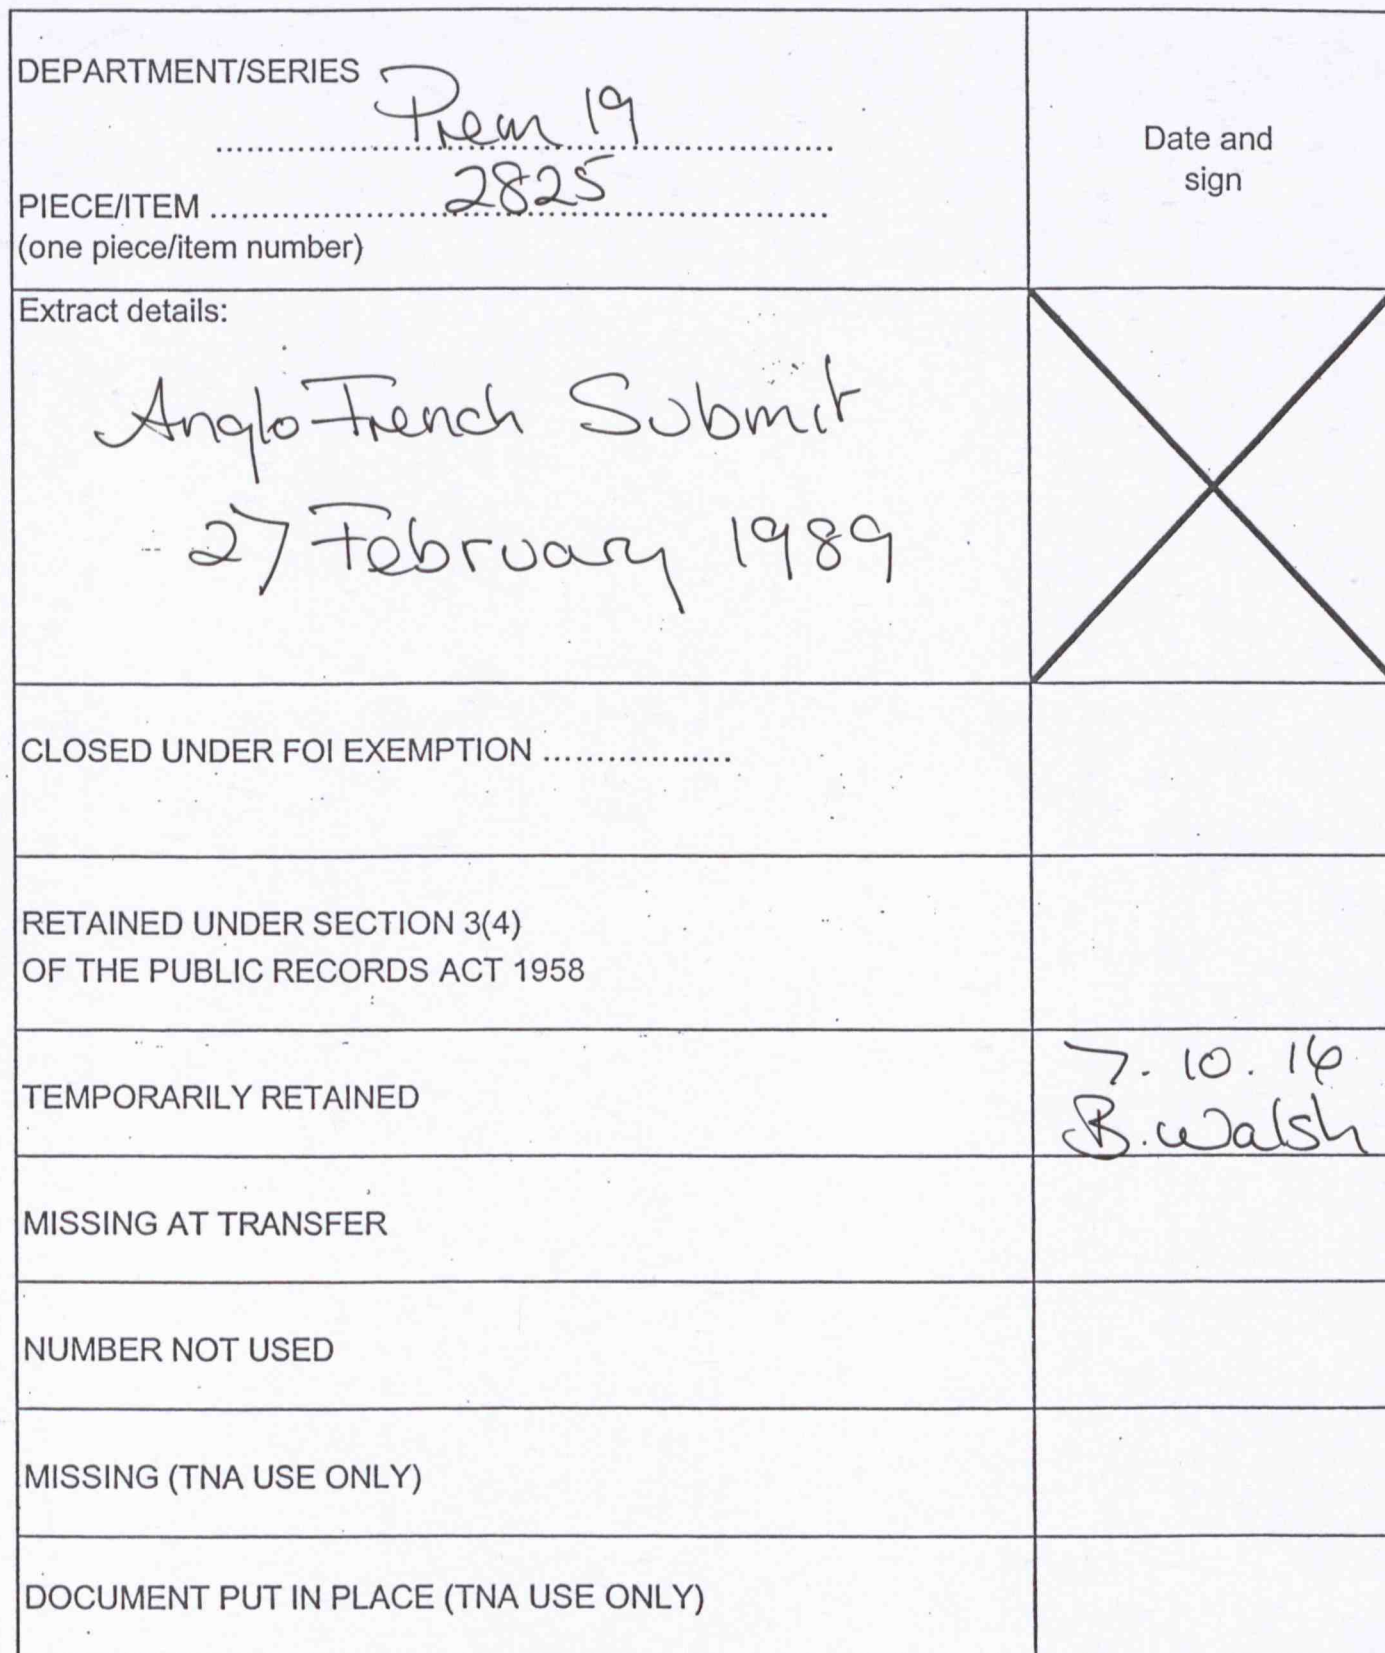 DEPARTMENT/SERIES
Prem 19
Date and
sign
PIECE/ITEM 2825
(one piece/item number)
Extract details:
Anglo French Submit
27 February 1989
CLOSED UNDER FOI EXEMPTION ..................
RETAINED UNDER SECTION 3(4)
OF THE PUBLIC RECORDS ACT 1958
TEMPORARILY RETAINED
7.10.16
B. Walsh
MISSING AT TRANSFER
NUMBER NOT USED
MISSING (TNA USE ONLY)
DOCUMENT PUT IN PLACE (TNA USE ONLY)